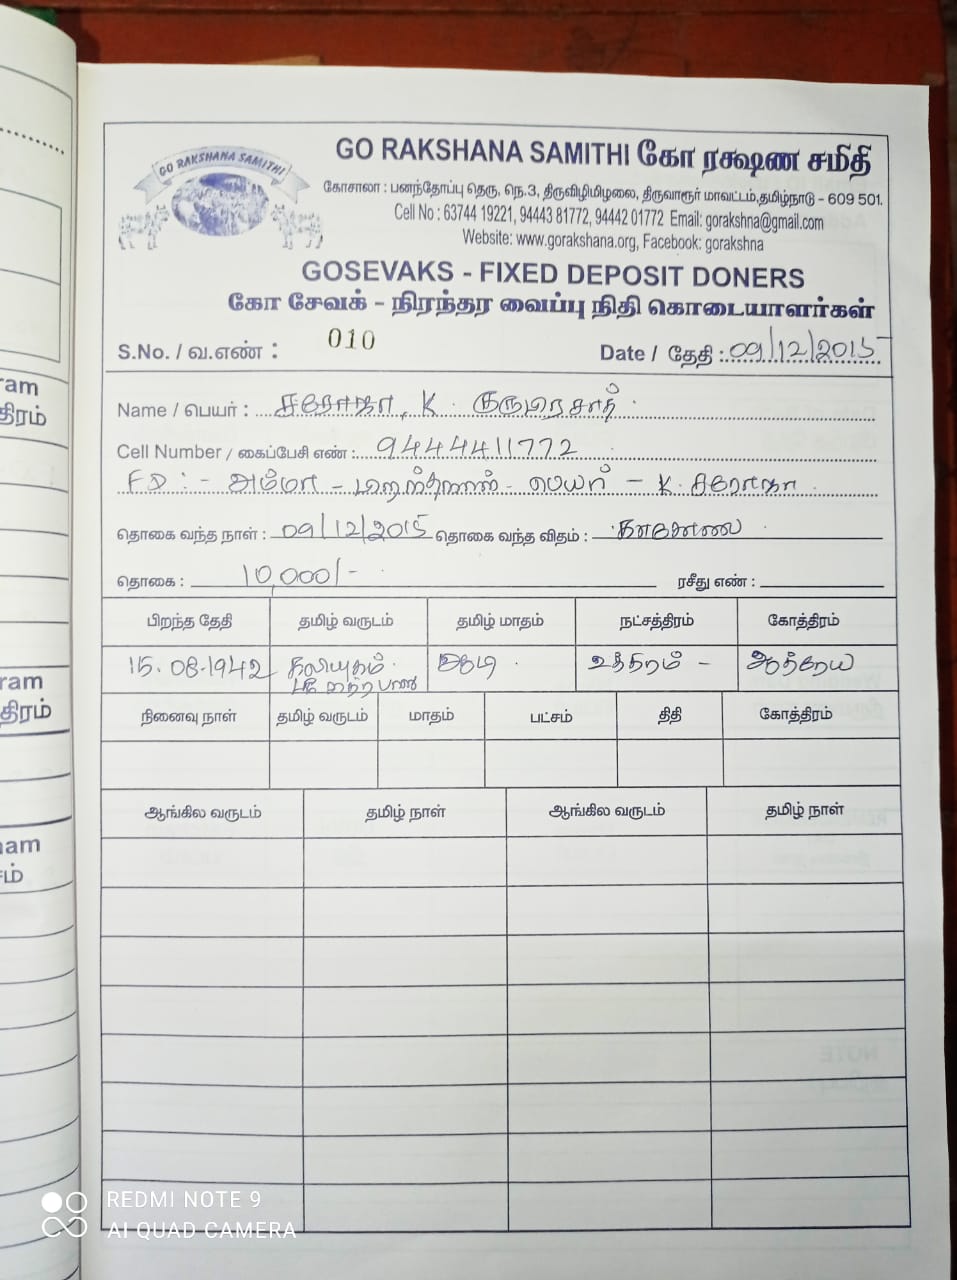 GO RAKSHANA SAMITHI
GO RAKSHANA SAMITHI கோ ரக்ஷண சமிதி
கோசாலா : பனந்தோப்பு தெரு, நெ.3, திருவிழிமிழலை, திருவாரூர் மாவட்டம்,தமிழ்நாடு - 609 501.
Cell No : 63744 19221, 94443 81772, 94442 01772 Email: gorakshna@gmail.com
Website: www.gorakshana.org, Facebook: gorakshna
GOSEVAKS - FIXED DEPOSIT DONERS
கோ சேவக் - நிரந்தர வைப்பு நிதி கொடையாளர்கள்
S.No. / வ.எண் : 010 Date / தேதி : 09/12/2015
Name / பெயர் : சரோஜா, K. குருபிரசாத்
Cell Number / கைப்பேசி எண் : 9444411772
FD : - அம்மா - பெயர் - K. சரோஜா
தொகை வந்த நாள் : 09/12/2015 தொகை வந்த விதம் : காசோலை
தொகை : 10,000/- ரசீது எண் :
பிறந்த தேதி தமிழ் வருடம் தமிழ் மாதம் நட்சத்திரம் கோத்திரம்
15.08.1942 கலியுகம் ஆடி உத்திரம் - ஆத்ரேய
நினைவு நாள் தமிழ் வருடம் மாதம் பட்சம் திதி கோத்திரம்
ஆங்கில வருடம் தமிழ் நாள் ஆங்கில வருடம் தமிழ் நாள்
ram
திரம்
ram
திரம்
NOTE
REDMI NOTE 9
AI QUAD CAMERA